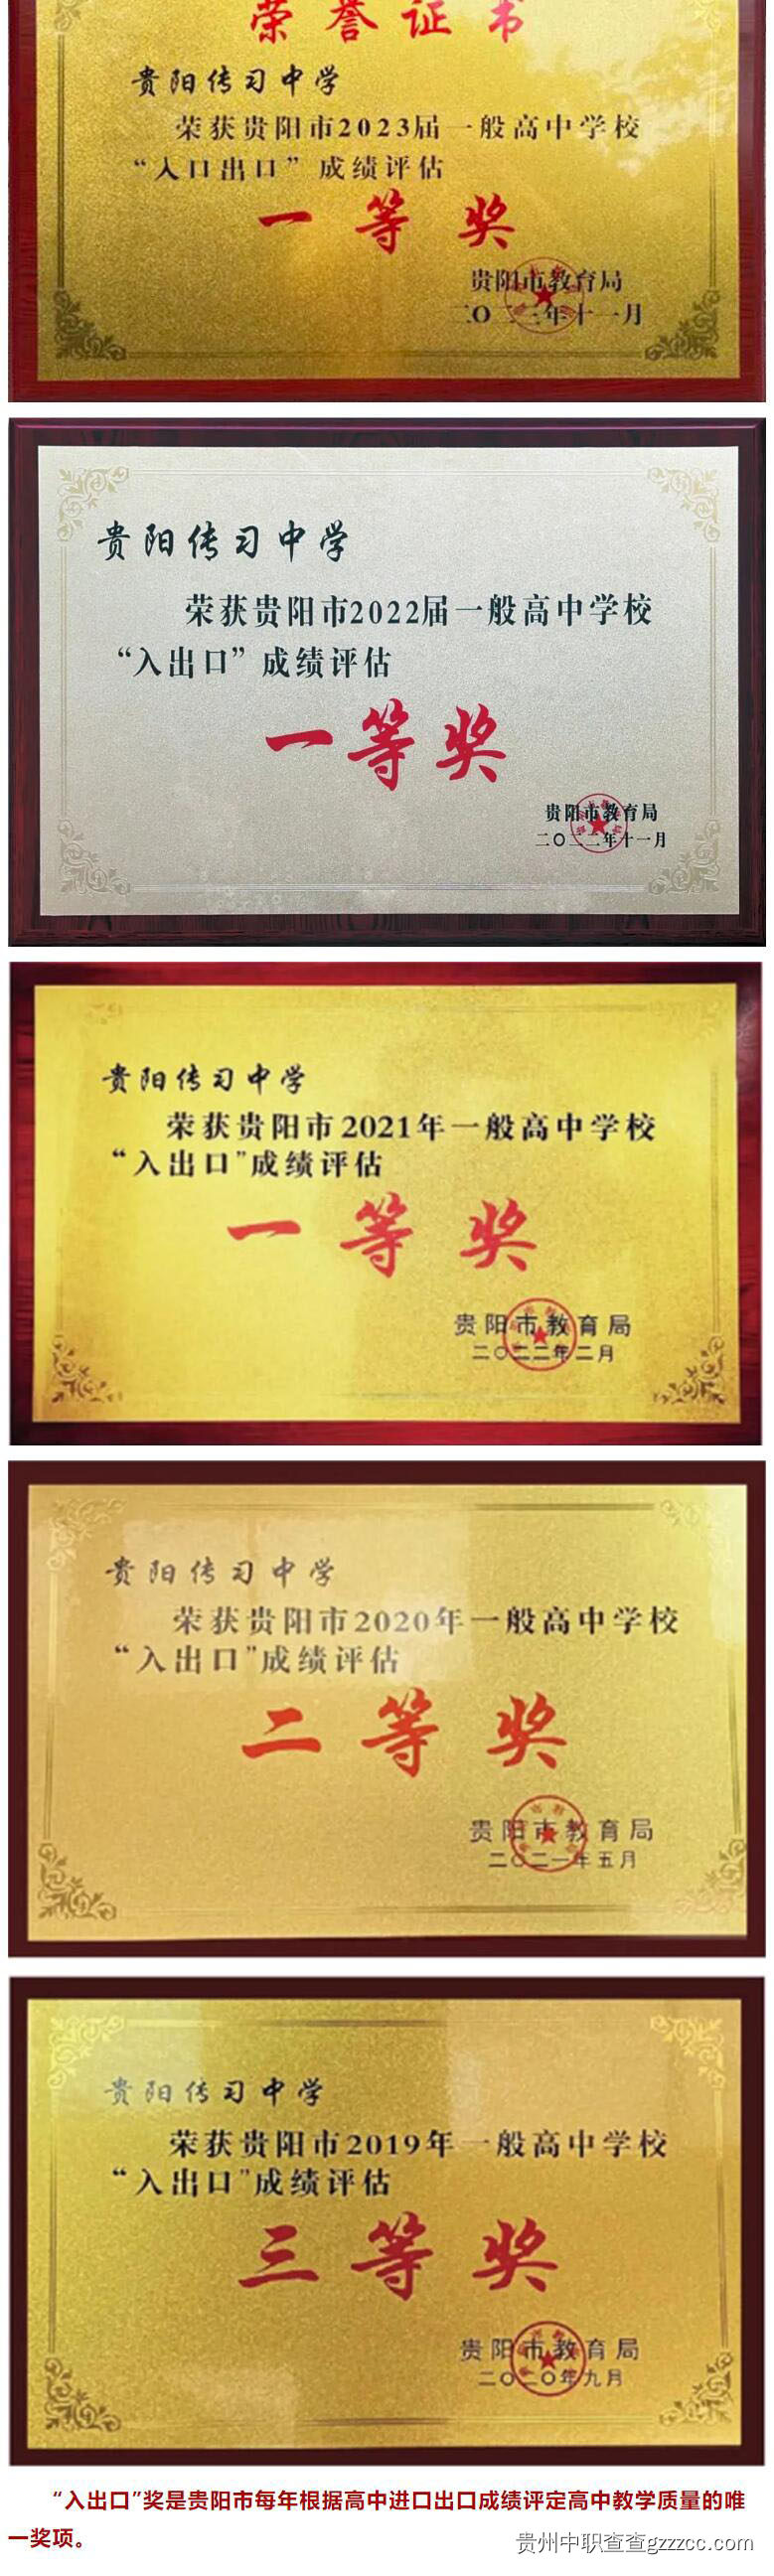 荣誉证书
贵阳传习中学
荣获贵阳市2023届一般高中学校
“入口出口”成绩评估
一等奖
贵阳市教育局
二〇二三年十一月
贵阳传习中学
荣获贵阳市2022届一般高中学校
“入出口”成绩评估
一等奖
贵阳市教育局
二〇二二年十一月
贵阳传习中学
荣获贵阳市2021年一般高中学校
“入出口”成绩评估
一等奖
贵阳市教育局
二〇二二年二月
贵阳传习中学
荣获贵阳市2020年一般高中学校
“入出口”成绩评估
二等奖
贵阳市教育局
二〇二一年五月
贵阳传习中学
荣获贵阳市2019年一般高中学校
“入出口”成绩评估
三等奖
贵阳市教育局
二〇二〇年九月
“入出口”奖是贵阳市每年根据高中进口出口成绩评定高中教学质量的唯
一奖项。
贵州中职查查gzzzcc.com